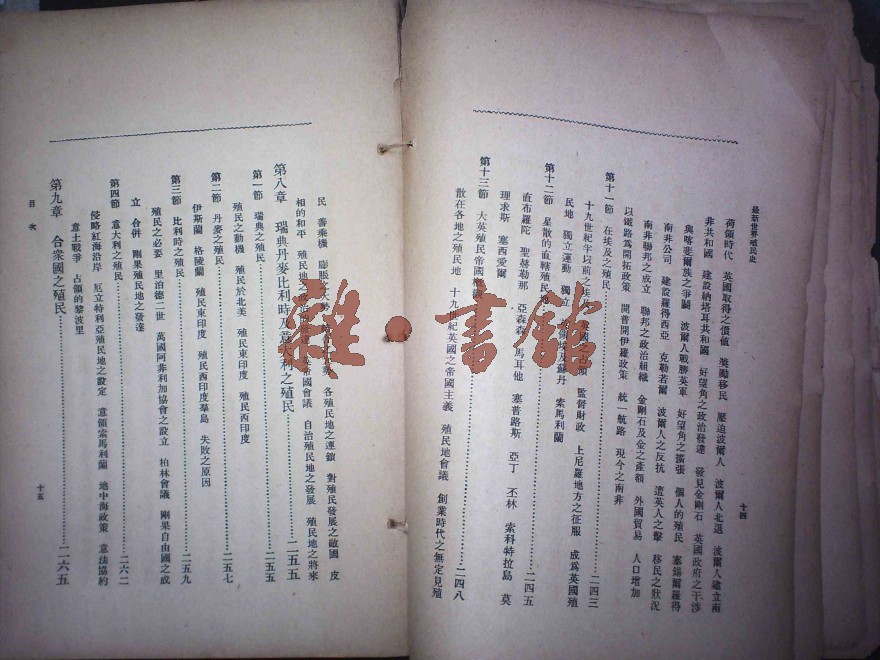 最新世界殖民史
十四
荷領時代 英國取得之價值 獎勵移民 壓迫波爾人 波爾人北退 波爾人建立南
非共和國 建設納塔耳共和國 好望角之政治發達 發見金剛石 英國政府之干涉
與喀斐爾族之爭鬭 波爾人戰勝英軍 好望角之擴張 個人的殖民 塞錫爾羅得
南非公司 建設羅得西亞 克勒若爾 波爾人之反抗 遣英人之擊 移民之狀況
南非聯邦之成立 聯邦之政治組織 金剛石及金之產額 外國貿易 人口增加
以鐵路爲開拓政策 開普開伊羅政策 統一航路 現今之南非
第十一節 在埃及之殖民……二四三
十九世紀半以前之埃及 英國之占領 監督財政 上尼羅地方之征服 成爲英國殖
民地 獨立運動 獨立 英領埃及蘇丹 索馬利蘭
第十二節 星散的直轄殖民地……二四五
直布羅陀 聖赫勒那 亞森森 馬耳他 塞普路斯 亞丁 丕林 索科特拉島 莫
理求斯 塞西愛爾
第十三節 大英殖民帝國概觀……二四八
散在各地之殖民地 十九世紀英國之帝國主義 殖民地會議 創業時代之無定見殖
民 善乘機 膨脹之大勢 各殖民地之連鎖 對殖民發展之敵國 皮
相的和平 殖民地 帝國會議 自治殖民地之發展 殖民地之將來
第八章 瑞典丹麥比利時及意大利之殖民……二五五
第一節 瑞典之殖民……二五五
殖民之動機 殖民於北美 殖民東印度 殖民西印度
第二節 丹麥之殖民……二五七
伊斯蘭 格陵蘭 殖民東印度 殖民西印度羣島 失敗之原因
第三節 比利時之殖民……二五九
殖民之必要 里泊德二世 萬國阿非利加協會之設立 柏林會議 剛果自由國之成
立 合併 剛果殖民地之發達
第四節 意大利之殖民……二六二
侵略紅海沿岸 厄立特利亞殖民地之設定 意領索馬利蘭 地中海政策 意法協約
意土戰爭 占領的黎波里
第九章 合衆國之殖民……二六五
目次
十五
雜·書館